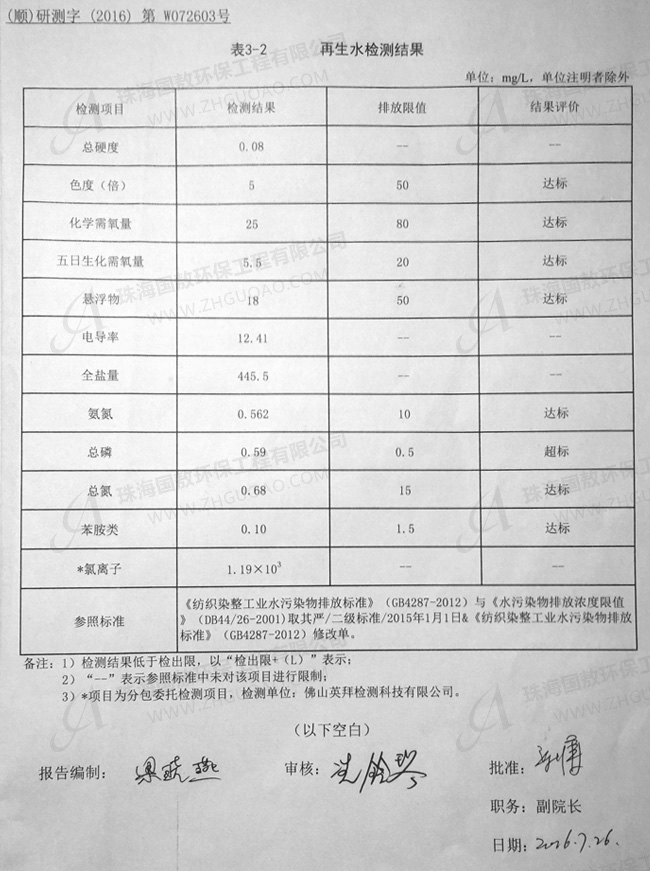 (顺)研测字 (2016) 第 W072603号
表3-2 再生水检测结果
单位：mg/L，单位注明者除外
检测项目 检测结果 排放限值 结果评价
总硬度 0.08 -- --
色度（倍） 5 50 达标
化学需氧量 25 80 达标
五日生化需氧量 5.5 20 达标
悬浮物 18 50 达标
电导率 12.41 -- --
全盐量 445.5 -- --
氨氮 0.562 10 达标
总磷 0.59 0.5 超标
总氮 0.68 15 达标
苯胺类 0.10 1.5 达标
*氯离子 1.19×10³ -- --
参照标准
《纺织染整工业水污染物排放标准》（GB4287-2012）与《水污染物排放浓度限值
》（DB44/26-2001)取其严/二级标准/2015年1月1日&《纺织染整工业水污染物排放
标准》（GB4287-2012）修改单。
备注：1）检测结果低于检出限，以“检出限+（L）”表示；
2）“--”表示参照标准中未对该项目进行限制；
3）*项目为分包委托检测项目，检测单位：佛山英拜检测科技有限公司。
（以下空白）
报告编制：
审核：
批准：
职务：副院长
日期：2016.7.26.
珠海国敖环保工程有限公司
WWW.ZHGUOAO.COM